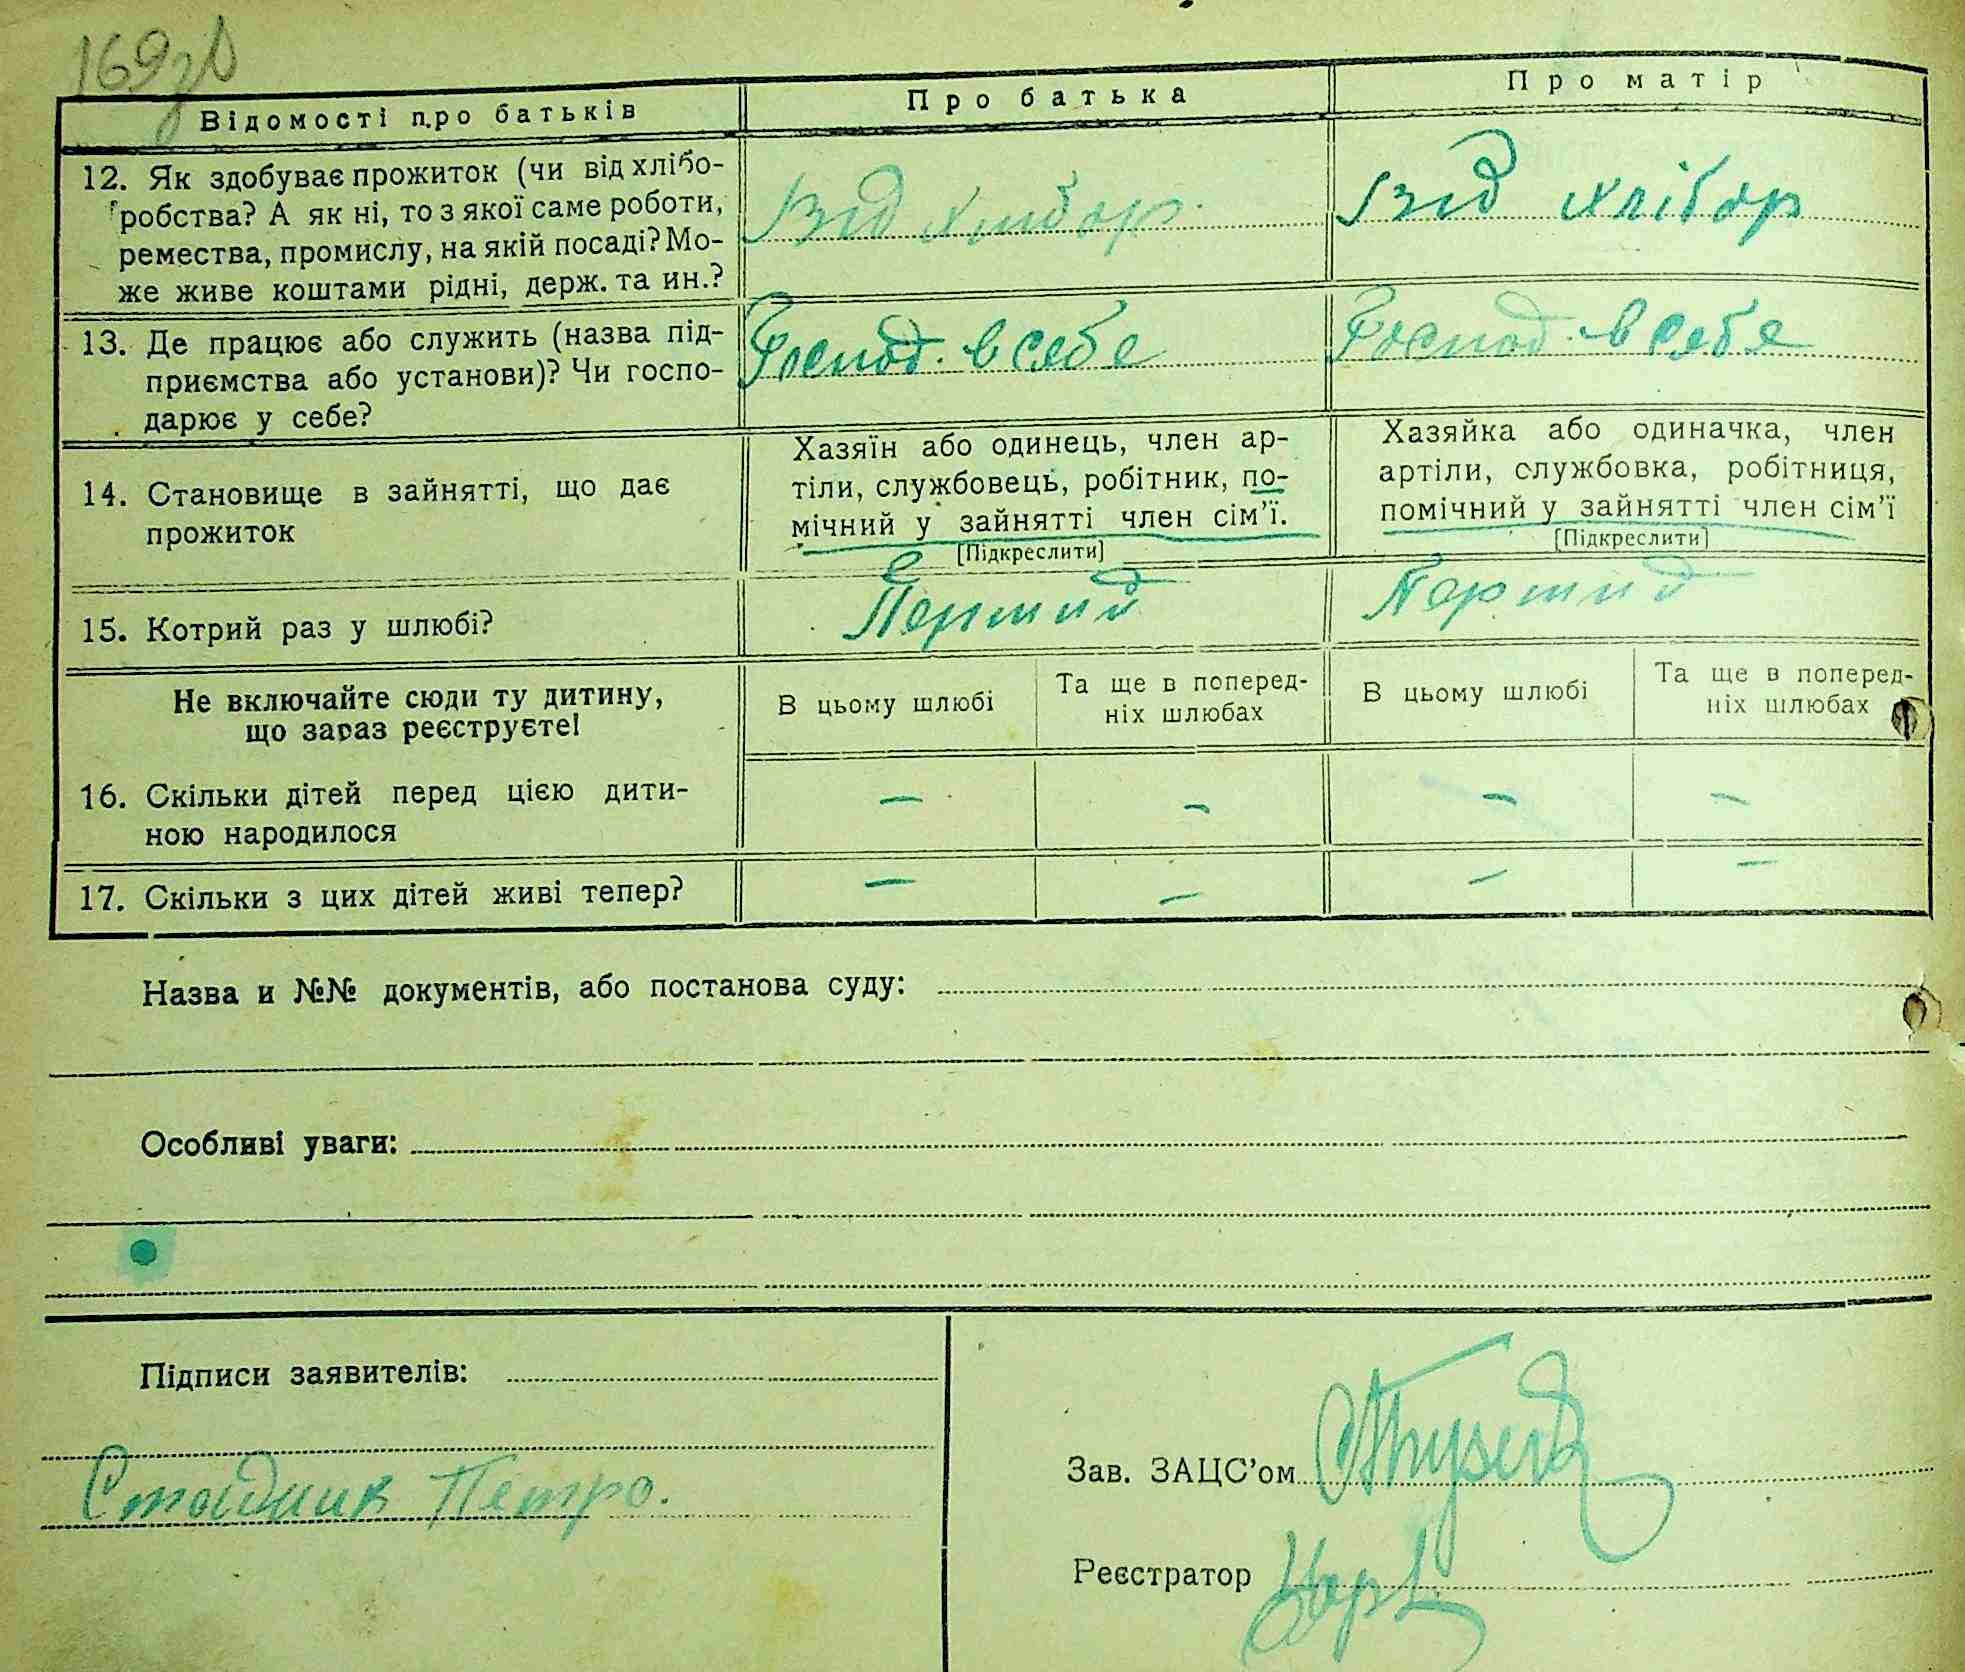 169зв
Відомості про батьків
Про батька
Про матір
12. Як здобуває прожиток (чи від хлібо-
робства? А як ні, то з якої саме роботи,
ремества, промислу, на якій посаді? Мо-
же живе коштами рідні, держ. та ин.?
Від хлібор.
Від хлібор
13. Де працює або служить (назва під-
приємства або установи)? Чи госпо-
дарює у себе?
Господ. в себе
Господ. в себе
14. Становище в зайнятті, що дає
прожиток
Хазяїн або одинець, член ар-
тіли, службовець, робітник, по-
мічний у зайнятті член сім'ї.
[Підкреслити]
Хазяйка або одиначка, член
артіли, службовка, робітниця,
помічний у зайнятті член сім'ї
[Підкреслити]
15. Котрий раз у шлюбі?
Перший
Перший
Не включайте сюди ту дитину,
що зараз реєструєте!
В цьому шлюбі
Та ще в поперед-
ніх шлюбах
В цьому шлюбі
Та ще в поперед-
ніх шлюбах
16. Скільки дітей перед цією дити-
ною народилося
— — — —
17. Скільки з цих дітей живі тепер?
— — — —
Назва и №№ документів, або постанова суду:
Особливі уваги:
Підписи заявителів:
Стадник Петро.
Зав. ЗАЦС'ом
Реєстратор